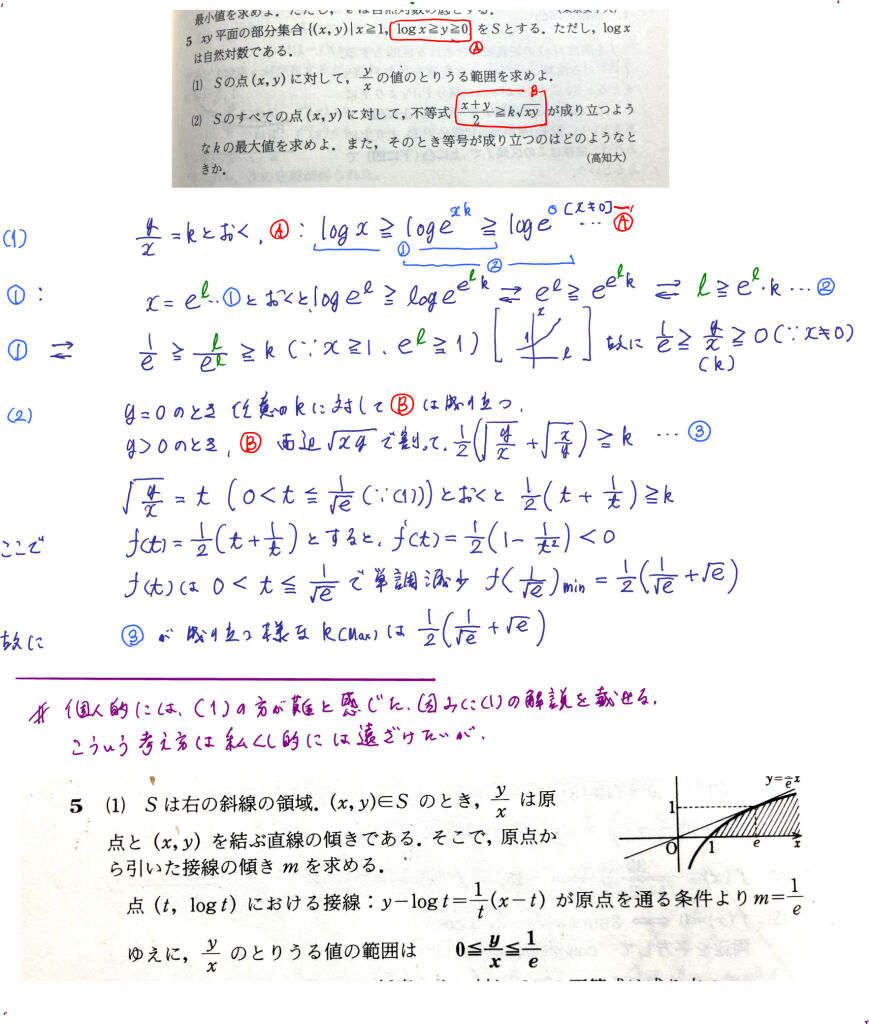 最小値を求めよ.ただし,eは自然対数の底とする.
5 xy平面の部分集合{(x, y)|x≧1, log x≧y≧0}をSとする.ただし,log x
Ⓐ
は自然対数である.
(1) Sの点(x, y)に対して, y/x の値のとりうる範囲を求めよ.
B
(2) Sのすべての点(x, y)に対して,不等式 (x+y)/2 ≧k√xy が成り立つよう
なkの最大値を求めよ.また,そのとき等号が成り立つのはどのようなと
きか. (高知大)
(1) y/x = kとおく, Ⓐ : log x ≧ log e^{xk} ≧ log e^0 [x≠0] … Ⓐ
① ②
① : x = e^l…①とおくと log e^l ≧ log e^{e^l k} ⇄ e^l ≧ e^{e^l k} ⇄ l ≧ e^l・k … ②
① ⇄ 1/e ≧ l/e^l ≧ k (∵x≧1、e^l≧1) [x 1 l] 故に 1/e ≧ y/x ≧ 0 (∵x≠0)
(k)
(2) y=0のとき 任意のkに対して Ⓑ は成り立つ.
y>0のとき, Ⓑ 両辺√xyで割って, 1/2(√(y/x) + √(x/y)) ≧ k … ③
√(y/x) = t (0<t≦1/√e (∵(1)))とおくと 1/2(t + 1/t) ≧k
ここで f(t) = 1/2(t+1/t)とすると, f'(t) = 1/2(1− 1/t²) < 0
f(t)は 0<t≦1/√e で単調減少 f(1/√e)min = 1/2(1/√e + √e)
故に ③ が成り立つ様な k(Max)は 1/2(1/√e + √e)
# 個人的には、(1)の方が難と感じた、因みに(1)の解説を載せる,
こういう考え方は私くし的には遠ざけたいが、
5 (1) Sは右の斜線の領域.(x, y)∈S のとき, y/x は原
点と(x, y)を結ぶ直線の傾きである.そこで,原点か
ら引いた接線の傾きmを求める.
y=1/e x
1
O 1 e x
点(t, log t)における接線:y−log t=1/t(x−t) が原点を通る条件より m=1/e
ゆえに, y/x のとりうる値の範囲は 0≦y/x≦1/e